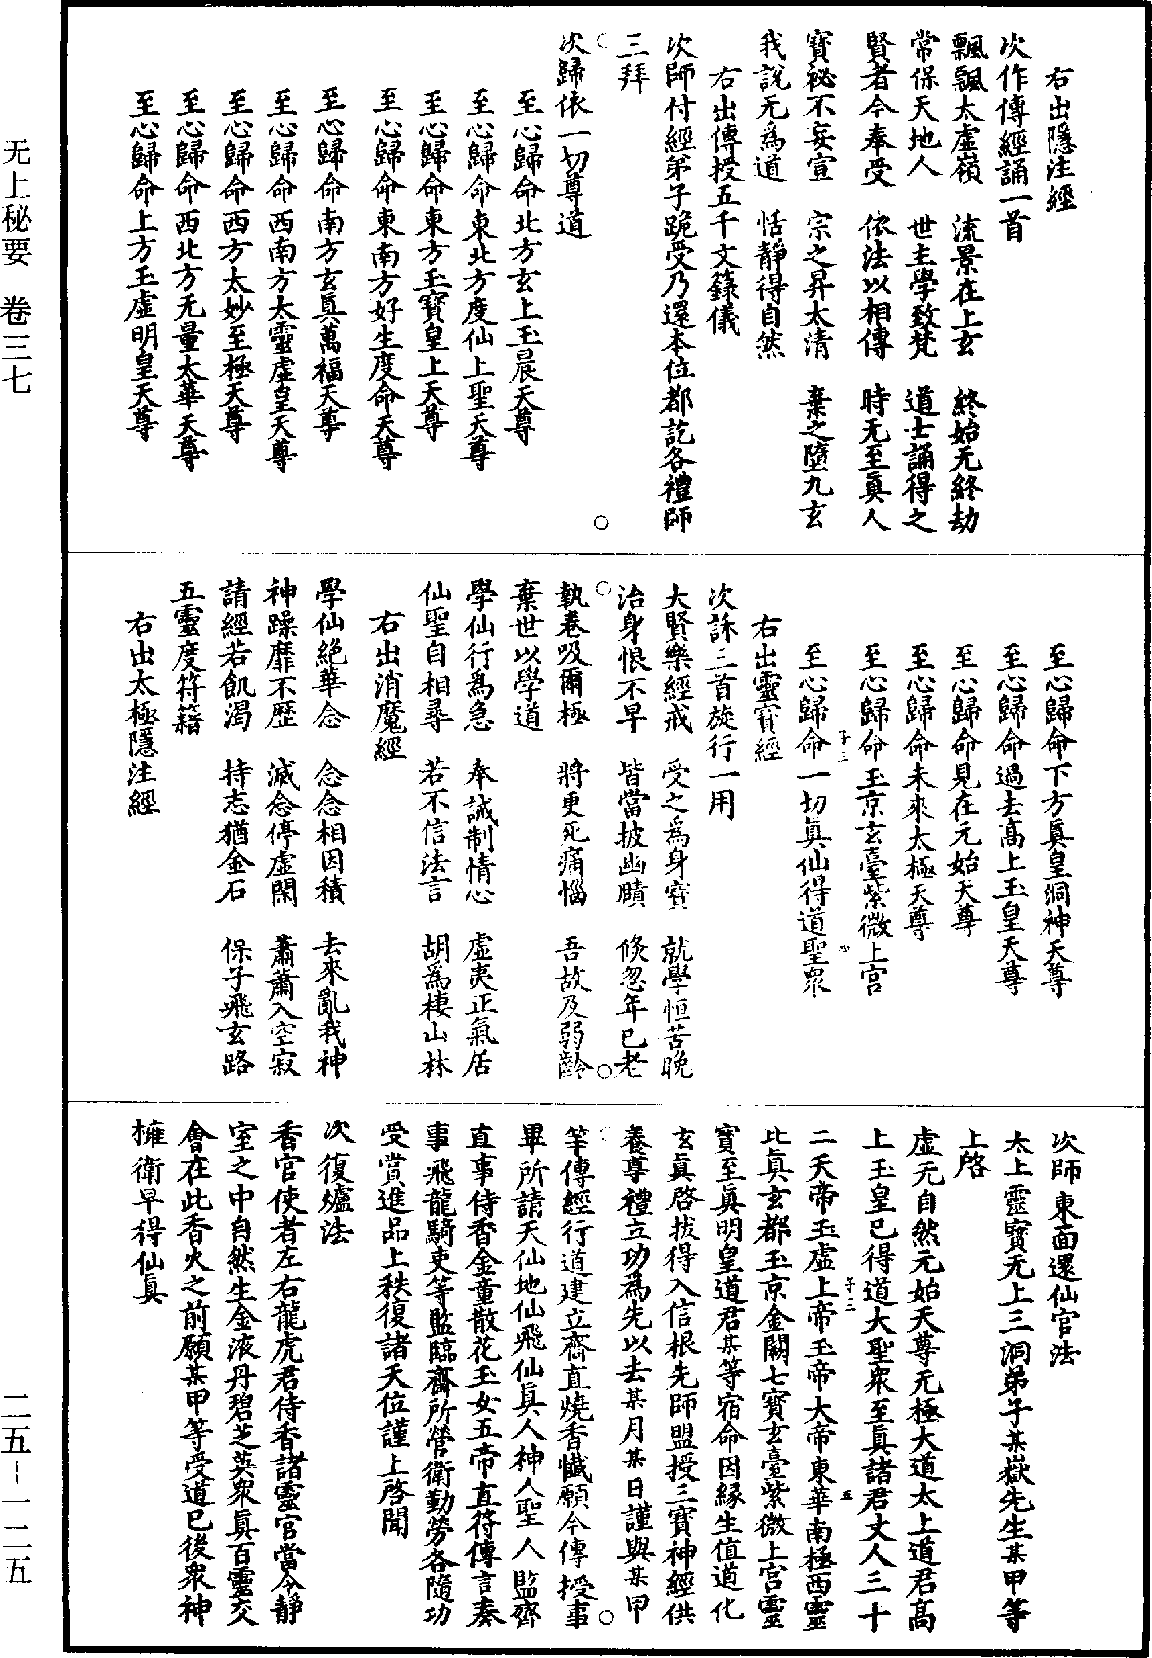 右出隱注經
次作傳經誦一首
飄飄太虛嶺　流景在上玄　終始无終劫
常保天地人　世主學致梵　道士誦得之
賢者今奉受　依法以相傳　時无至眞人
寶祕不妄宣　宗之昇太清　棄之墮九玄
我說无爲道　恬靜得自然
右出傳授五千文籙儀
次師付經弟子跪受乃還本位都訖各禮師
三拜
次歸依一切尊道
至心歸命北方玄上玉晨天尊
至心歸命東北方度仙上聖天尊
至心歸命東方玉寶皇上天尊
至心歸命東南方好生度命天尊
至心歸命南方玄眞萬福天尊
至心歸命西南方太靈虛皇天尊
至心歸命西方太妙至極天尊
至心歸命西北方无量太華天尊
至心歸命上方玉虛明皇天尊
至心歸命下方眞皇洞神天尊
至心歸命過去高上玉皇天尊
至心歸命見在元始天尊
至心歸命未來太極天尊
至心歸命玉京玄臺紫微上宮
至心歸命一切眞仙得道聖衆
右出靈寶經
次詠三首旋行一用
大賢樂經戒　受之爲身寶　就學恒苦晚
治身恨不早　皆當披幽賾　倏忽年已老
執卷吸爾極　將更死痛惱　吾故及弱齡
棄世以學道
學仙行爲急　奉誡制情心　虛夷正氣居
仙聖自相尋　若不信法言　胡爲棲山林
右出消魔經
學仙絕華念　念念相因積　去來亂我神
神躁靡不歷　滅念停虛閑　蕭蕭入空寂
請經若飢渴　持志猶金石　保子飛玄路
五靈度符籍
右出太極隱注經
次師東面還仙官法
太上靈寶无上三洞弟子某嶽先生某甲等
上啓
虛无自然元始天尊无極大道太上道君高
上玉皇已得道大聖衆至眞諸君丈人三十
二天帝玉虛上帝玉帝大帝東華南極西靈
北眞玄都玉京金闕七寶玄臺紫微上宮靈
寶至眞明皇道君某等宿命因緣生值道化
玄眞啓拔得入信根先師盟授三寶神經供
養尊禮立功爲先以去某月某日謹與某甲
等傳經行道建立齋直燒香懺願今傳授事
畢所請天仙地仙飛仙眞人神人聖人監齋
直事侍香金童散花玉女五帝直符傳言奏
事飛龍騎吏等監臨齋所營衛勤勞各隨功
受賞進品上秩復諸天位謹上啓聞
次復爐法
香官使者左右龍虎君侍香諸靈官當令靜
室之中自然生金液丹碧芝英衆眞百靈交
會在此香火之前願某甲等受道已後衆神
擁衛早得仙眞
无上秘要　卷三七
二五—一二五